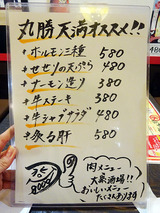 丸勝天満オススメ!!
ホルモン三種 580
せせりの天ぷら 480
ナーモン造り 380
牛ステーキ 380
牛シャブサラダ 480
炙り肝 580
肉メニュー
大衆酒場!!
おいしいメニュー
たくさん有ります